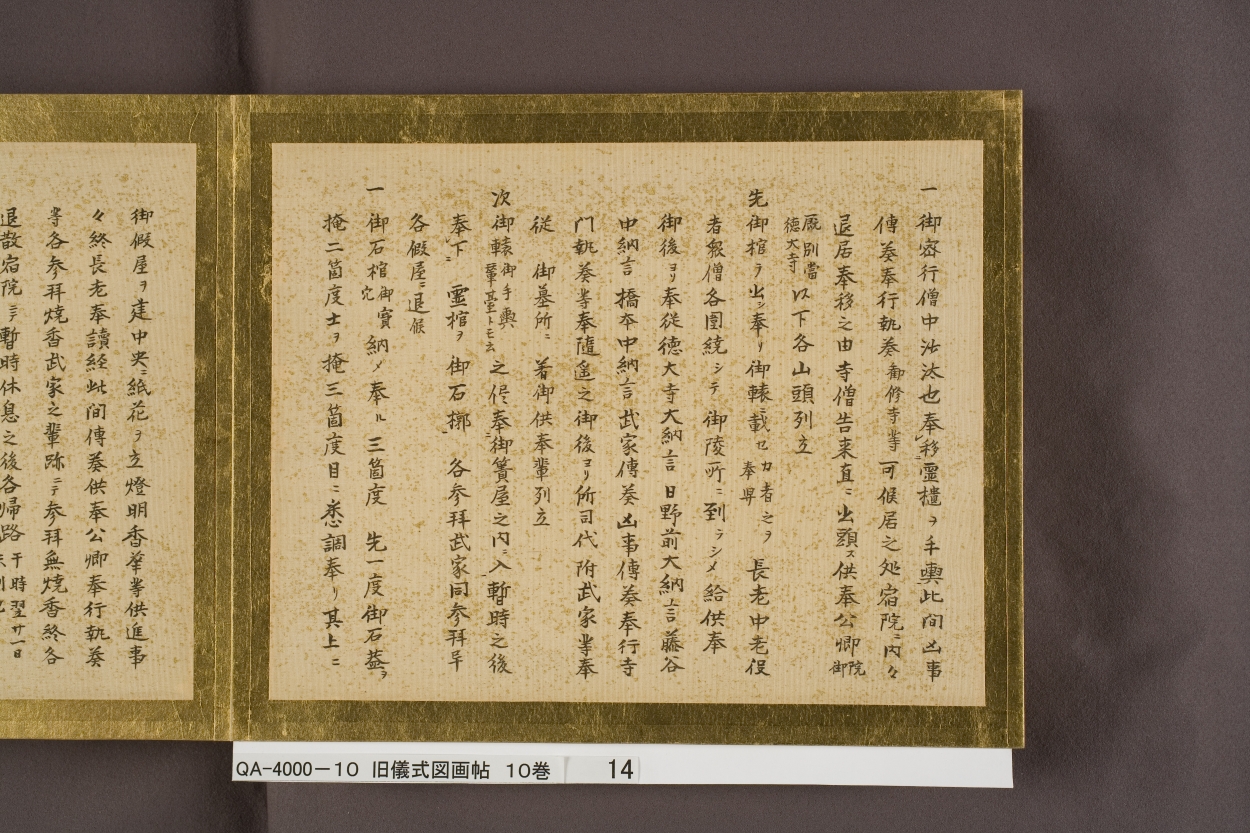 一 御密行僧中沙汰也奉移霊櫃ヲ手輿此間凶事
傳奏奉行執奏御修寺等可候居之処宿院ニ内々
退居奉移之由寺僧告来直ニ出頭ス供奉公卿御院
厩別當
徳大寺 以下各山頭列立
先御棺ヲ出シ奉リ御轅ニ載セ力者之ヲ奉舁 長老中老役
者衆僧各圍繞シテ御陵所ニ到ラシメ給供奉
御後ヨリ奉従徳大寺大納言日野前大納言藤谷
中納言橋本中納言武家傳奏凶事傳奏奉行寺
門執奏等奉隨遥之御後ヨリ所司代附武家等奉
従 御墓所ニ着御供奉輩列立
次御轅御手輿輦臺トモ云之侭奉御簀屋之内ニ入暫時之後
奉下ニ霊棺ヲ御石槨 各参拝武家同参拝畢
各假屋ニ退候
一 御石棺御寳穴納メ奉ル三箇度 先一度御石蓋ヲ
掩二箇度士ヲ掩三箇度目ニ悉調奉リ其上ニ
御假屋ヲ建中央ニ紙花ヲ立燈明香華等供進事
々終長老奉讀経此間傳奏供奉公卿奉行執奏
等各参拝焼香武家之輩跡ニテ参拝無焼香終各
退散宿院ニテ暫時休息之後各帰路于時翌廿一日
QA-4000-10 旧儀式図画帖 10巻 14